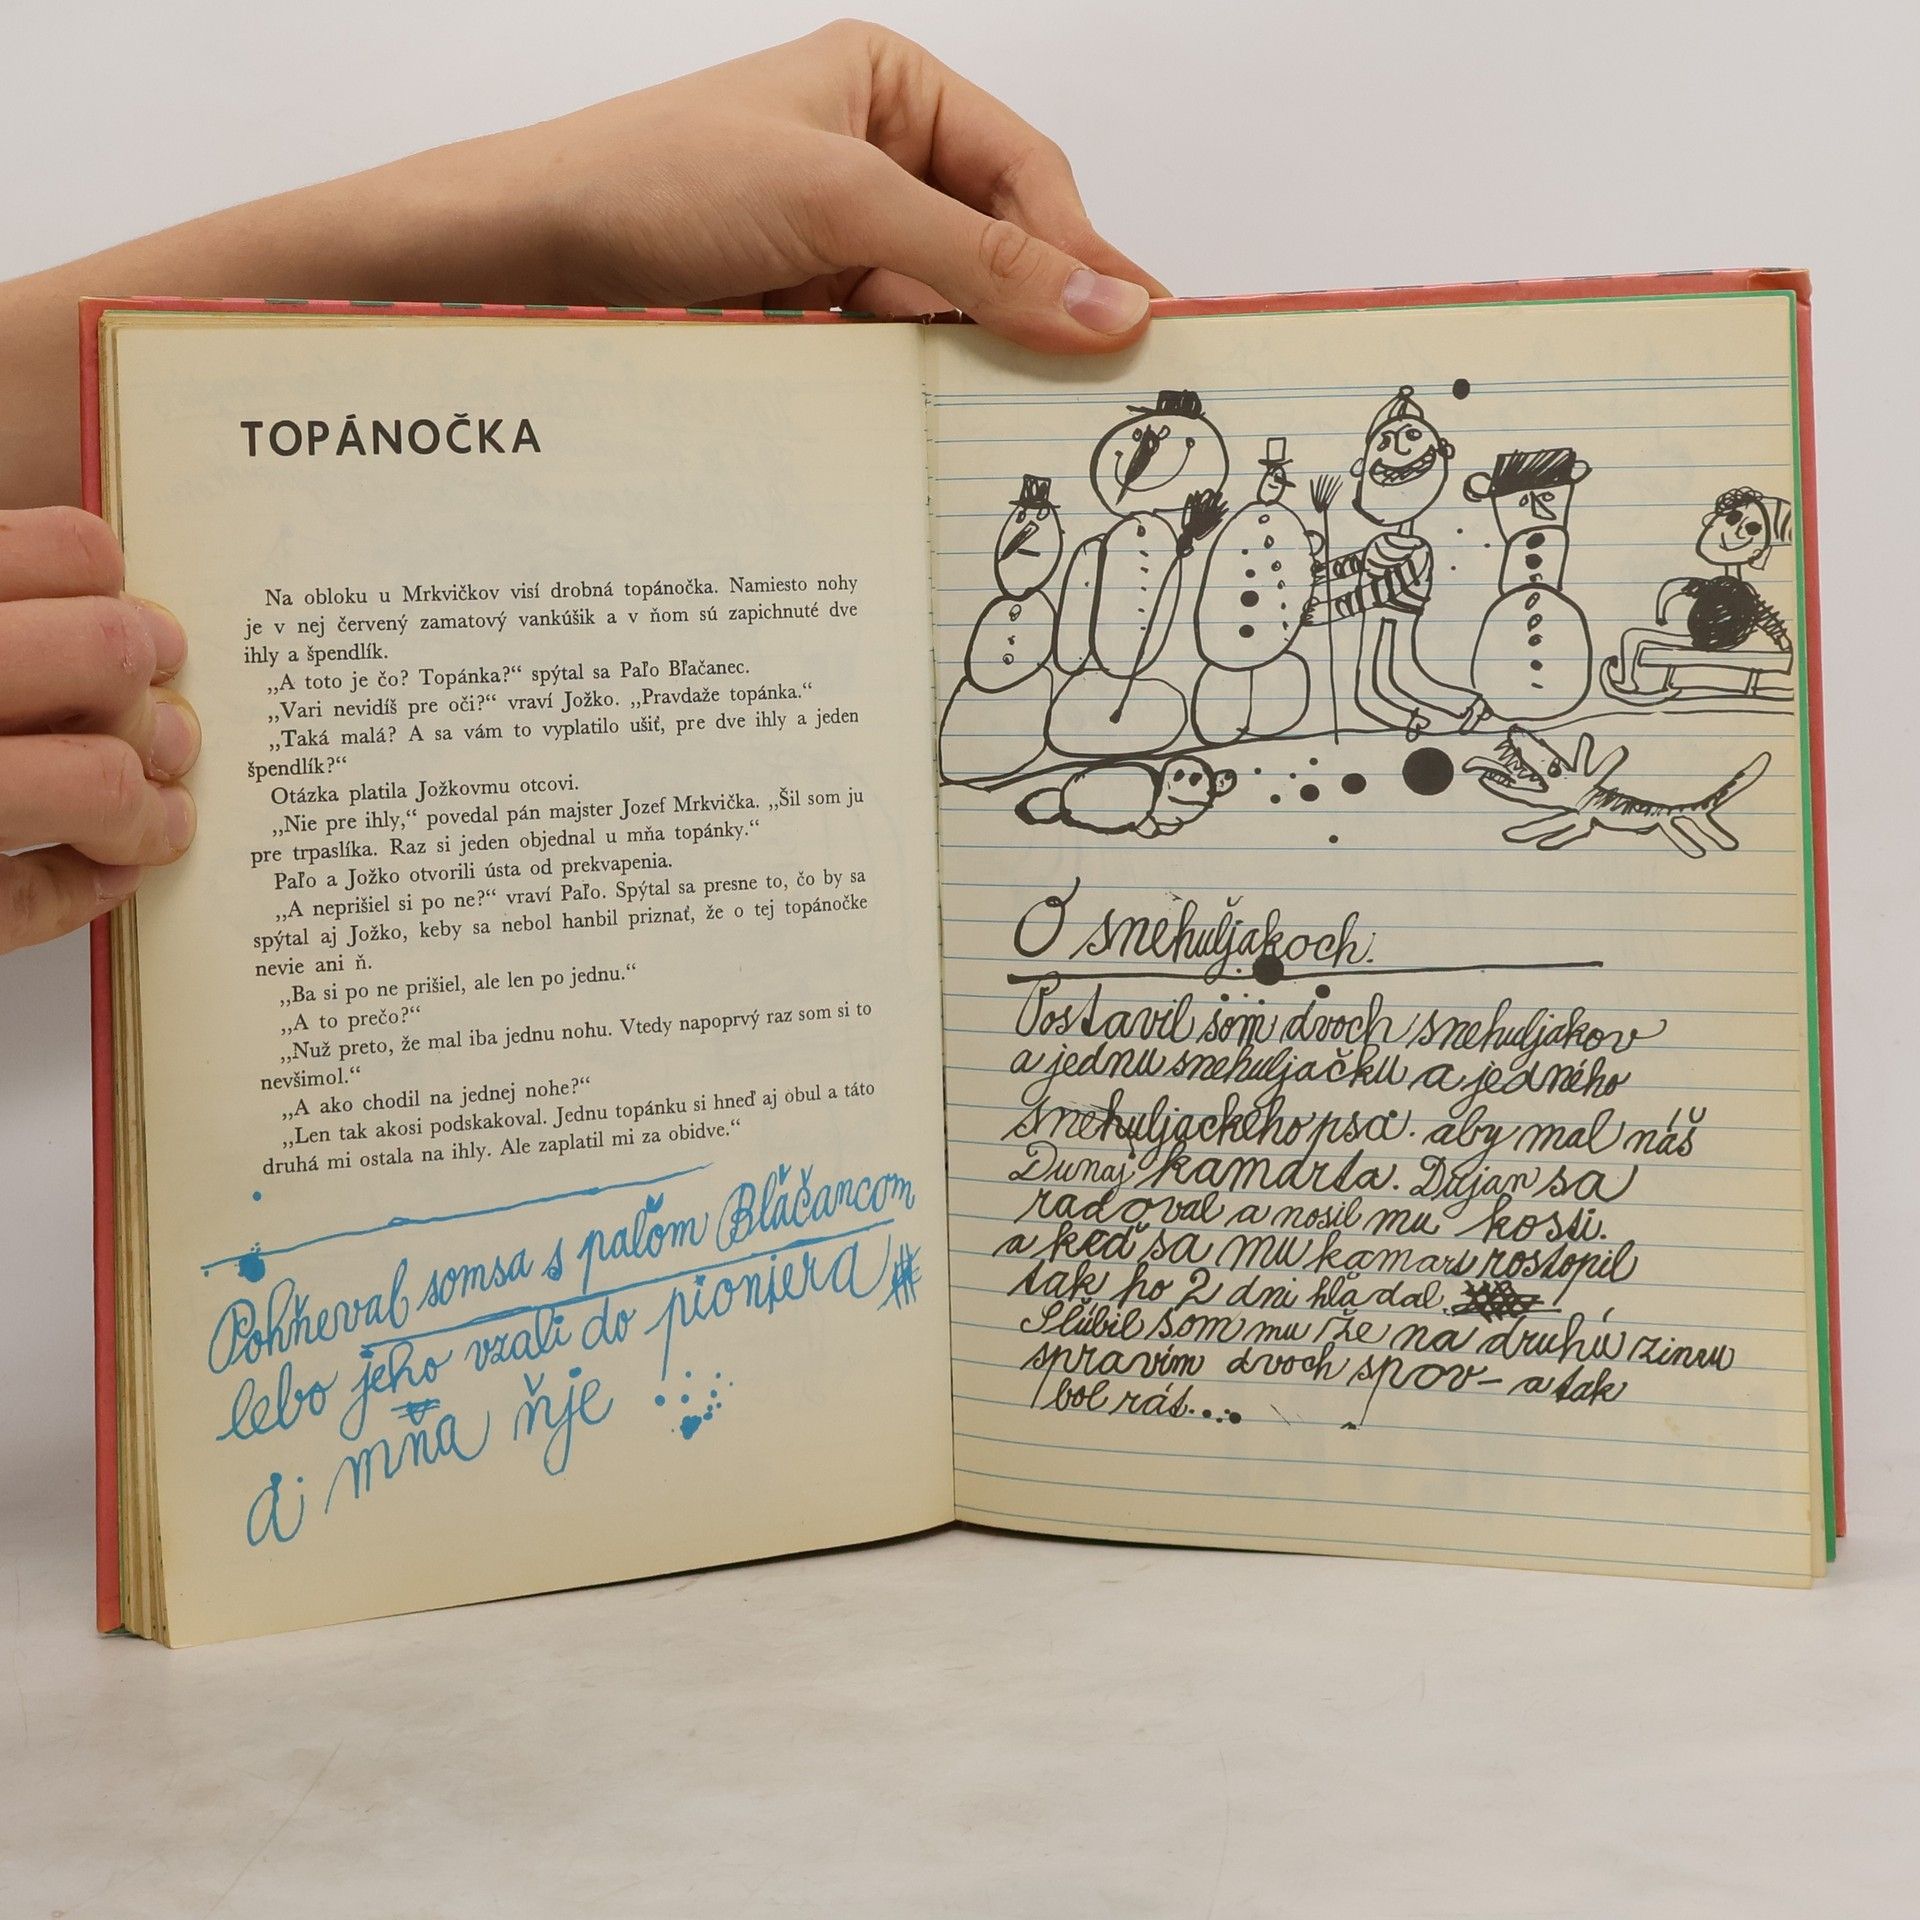 TOPÁNOČKA
Na obloku u Mrkvičkov visí drobná topánočka. Namiesto nohy
je v nej červený zamatový vankúšik a v ňom sú zapichnuté dve
ihly a špendlík.
„A toto je čo? Topánka?“ spýtal sa Paľo Bľačanec.
„Vari nevidíš pre oči?“ vraví Jožko. „Pravdaže topánka.“
„Taká malá? A sa vám to vyplatilo ušiť, pre dve ihly a jeden
špendlík?“
Otázka platila Jožkovmu otcovi.
„Nie pre ihly,“ povedal pán majster Jozef Mrkvička. „Šil som ju
pre trpaslíka. Raz si jeden objednal u mňa topánky.“
Paľo a Jožko otvorili ústa od prekvapenia.
„A neprišiel si po ne?“ vraví Paľo. Spýtal sa presne to, čo by sa
spýtal aj Jožko, keby sa nebol hanbil priznať, že o tej topánočke
nevie ani ň.
„Ba si po ne prišiel, ale len po jednu.“
„A to prečo?“
„Nuž preto, že mal iba jednu nohu. Vtedy napoprvý raz som si to
nevšimol.“
„A ako chodil na jednej nohe?“
„Len tak akosi podskakoval. Jednu topánku si hneď aj obul a táto
druhá mi ostala na ihly. Ale zaplatil mi za obidve.“
Pohňeval somsa s paľom Bláčancom
lebo jeho vzali do pionjera
a mňa ňje
O snehuljakoch.
Postavil som dvoch snehuljakov
a jednu snehuljačku a jedného
snehuljackeho psa. aby mal náš
Dunaj kamarta. Dujan sa
radoval a nosil mu kosti.
a keď sa mu kamart rostopil
tak ho 2 dni hladal.
Slúbil som mu že na druhú zimu
spravím dvoch spov- a tak
bol rát...